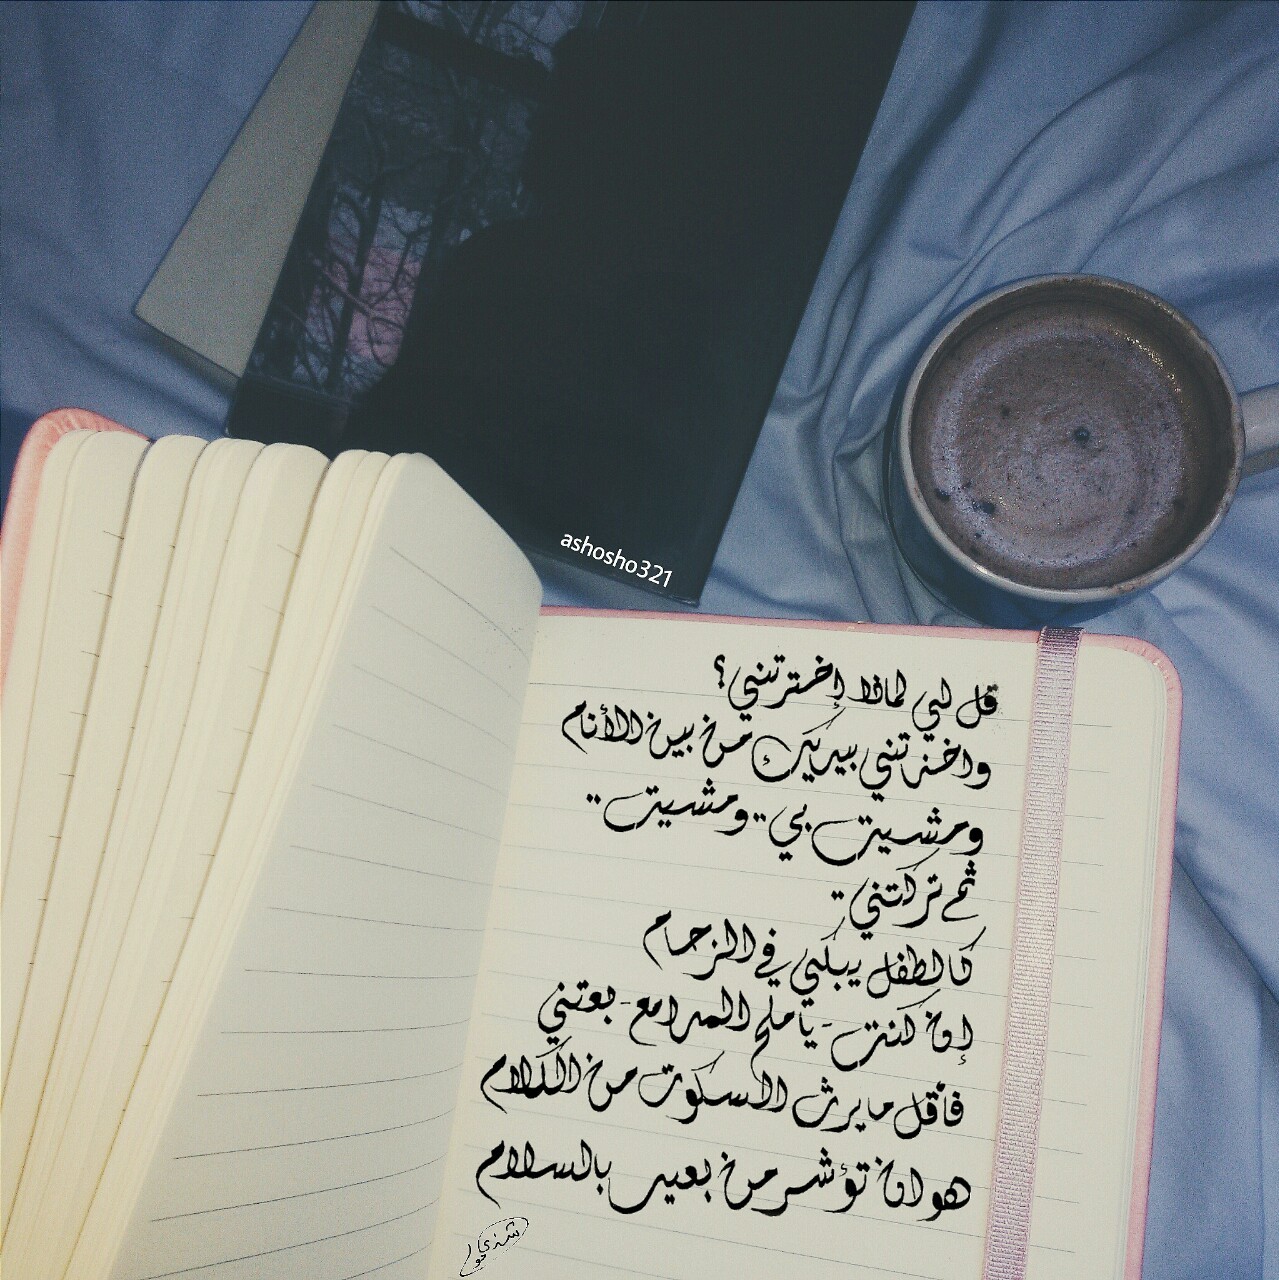 ashosho321
قل لي لماذا إخترتني؟
واخذتني بيديك من بين الأنام
ومشيت بي .. ومشيت ..
ثم تركتني ..
كالطفل يبكي في الزحام
إن كنت - يا ملح المدامع - بعتني
فأقل ما يرث السكوت من الكلام
هو ان تؤشر من بعيد بالسلام